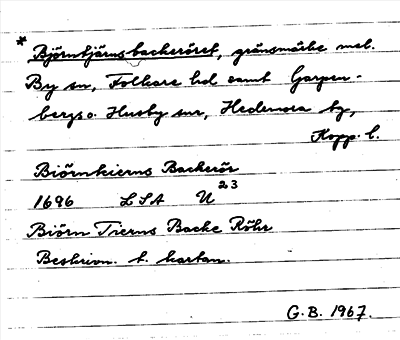 * Björntjärnsbackeröret, gränsmärke mel.
By sn, Folkare hd samt Garpen-
bergs o. Husby snr, Hedemora tg,
Kopp. l.
Biörnkierns Backerör
1696 LSA U 23
Biörn Tierns Backe Röhr
Beskrivn. t. kartan.
G.B. 1967.